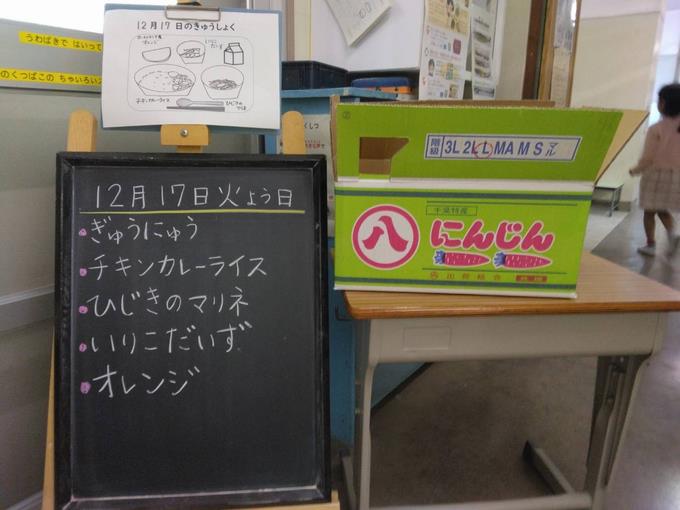 うわばきで はいって
のくつばこの ちゃいろい
12月17日のきゅうしょく
オレンジ
いりこ
だいず
チキンカレーライス
ひじきの
マリネ
12月17日火よう日
ぎゅうにゅう
チキンカレーライス
ひじきのマリネ
いりこだいず
オレンジ
階級 3L 2L L MA M S マル
千葉特産
八
にんじん
出荷組合